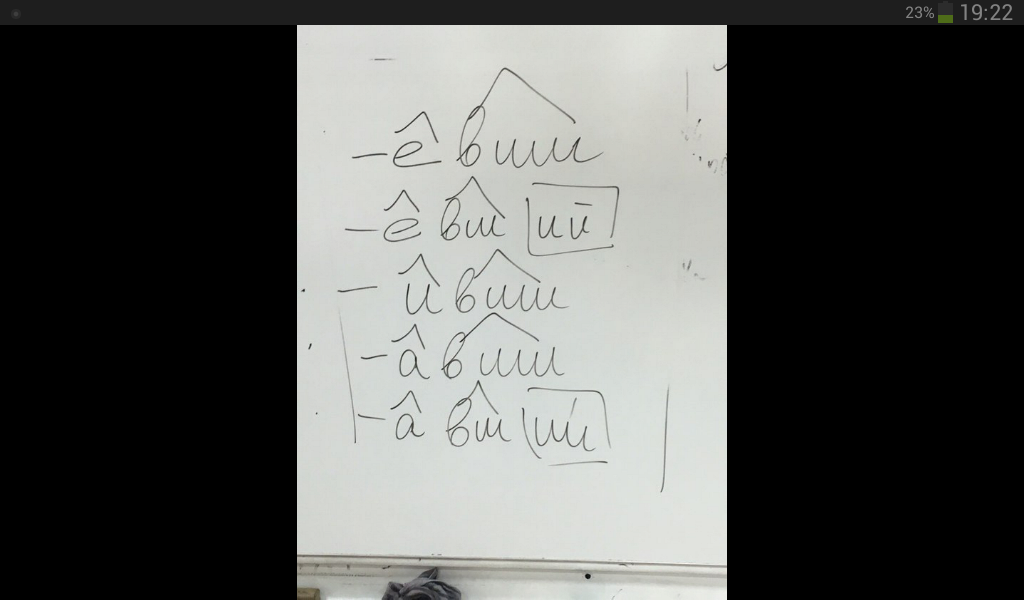 23% 19:22
– е вши
– е вш ий
– и вши
– а вши
– а вш ий